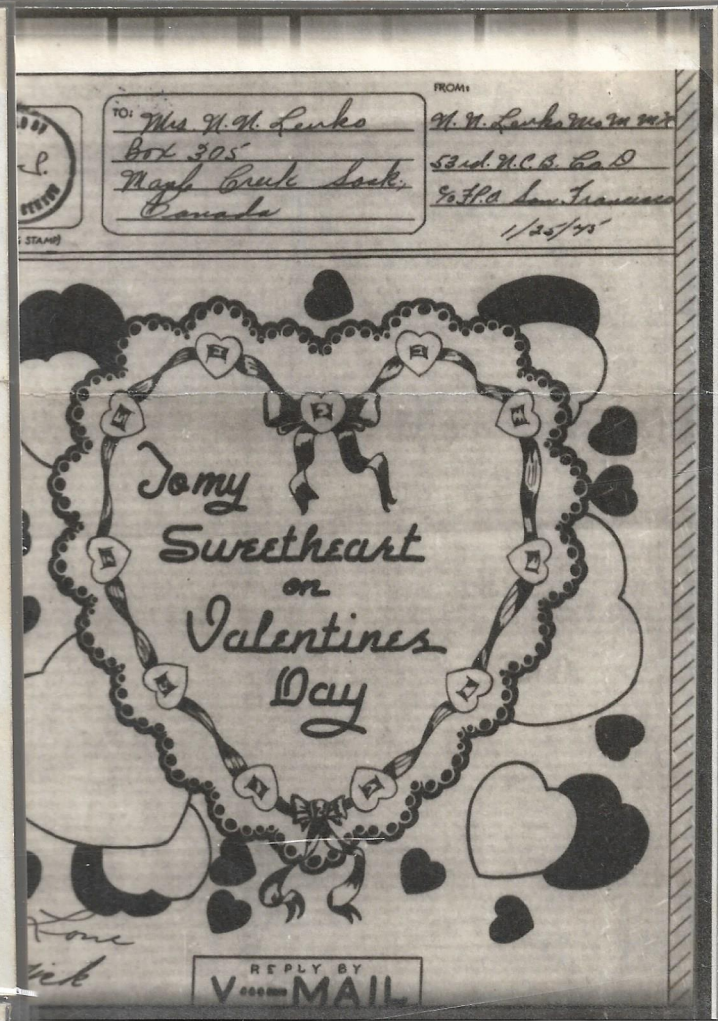 TO:
Mrs. N. N. Lenko
Box 305
Maple Creek Sask.
Canada
FROM:
N. N. Lenko
53rd. N.C.B. Co D
c/o F.P.O. San. Francisco
1/25/45
D BY
STAMP)
To my
Sweetheart
on
Valentines
Day
Love
REPLY BY
V---MAIL